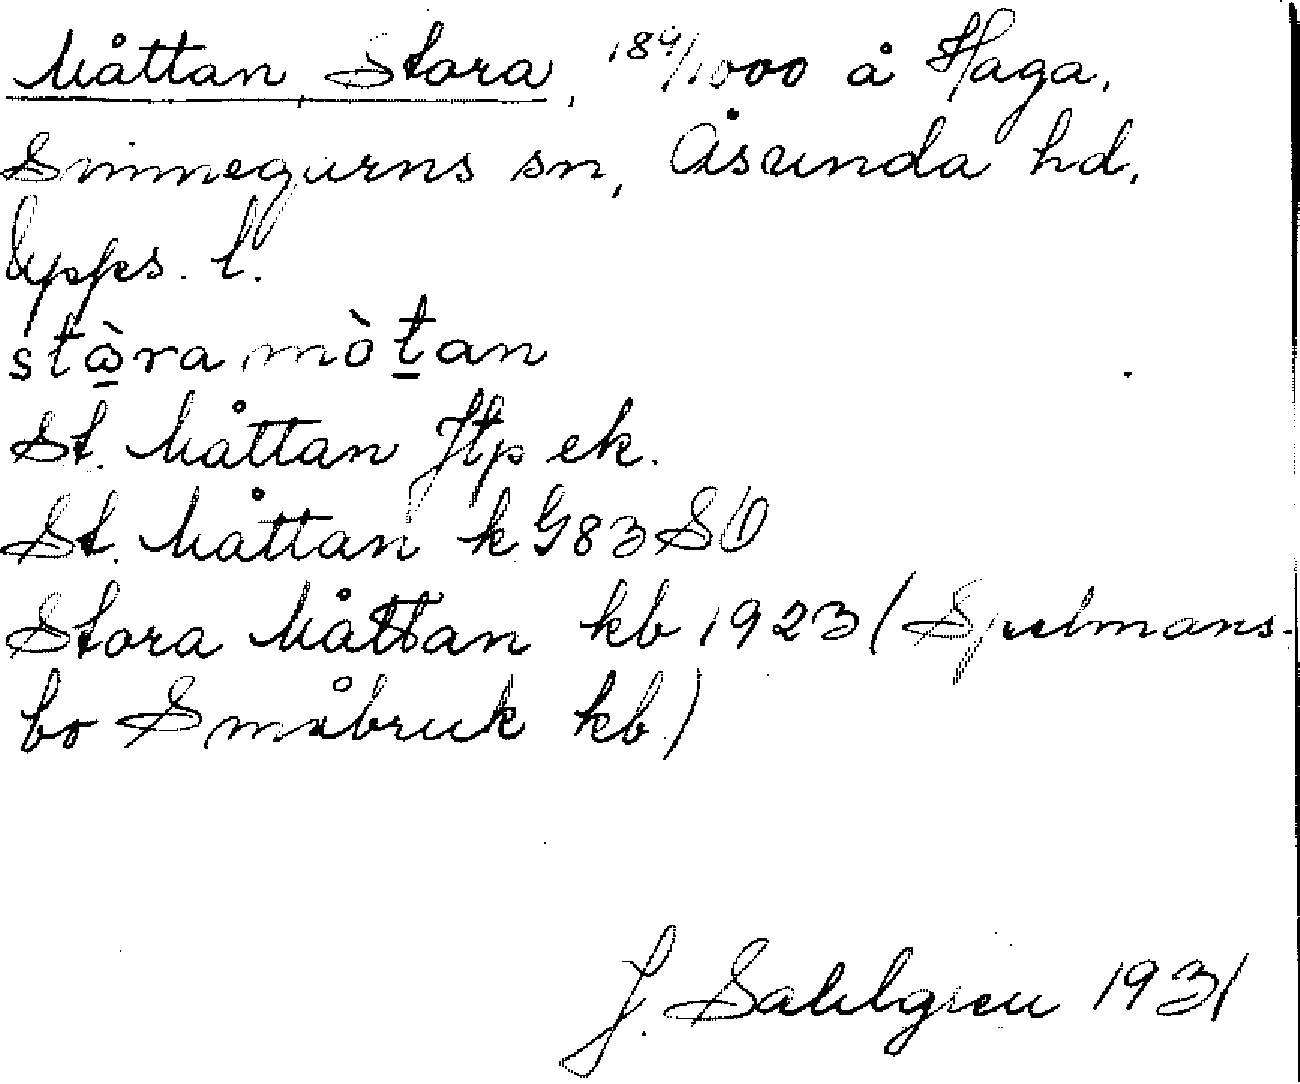 Måttan, Stora, 184/1000 å Haga,
Simmegarns sn, Åsunda hd,
Upps. l.
stɷ̀ra mòtan
St. Måttan Jtp ek.
St. Måttan k G83SO
Stora Måttan kb 1923 (Spelmans-
bo Småbruk kb.)
J. Sahlgren 1931